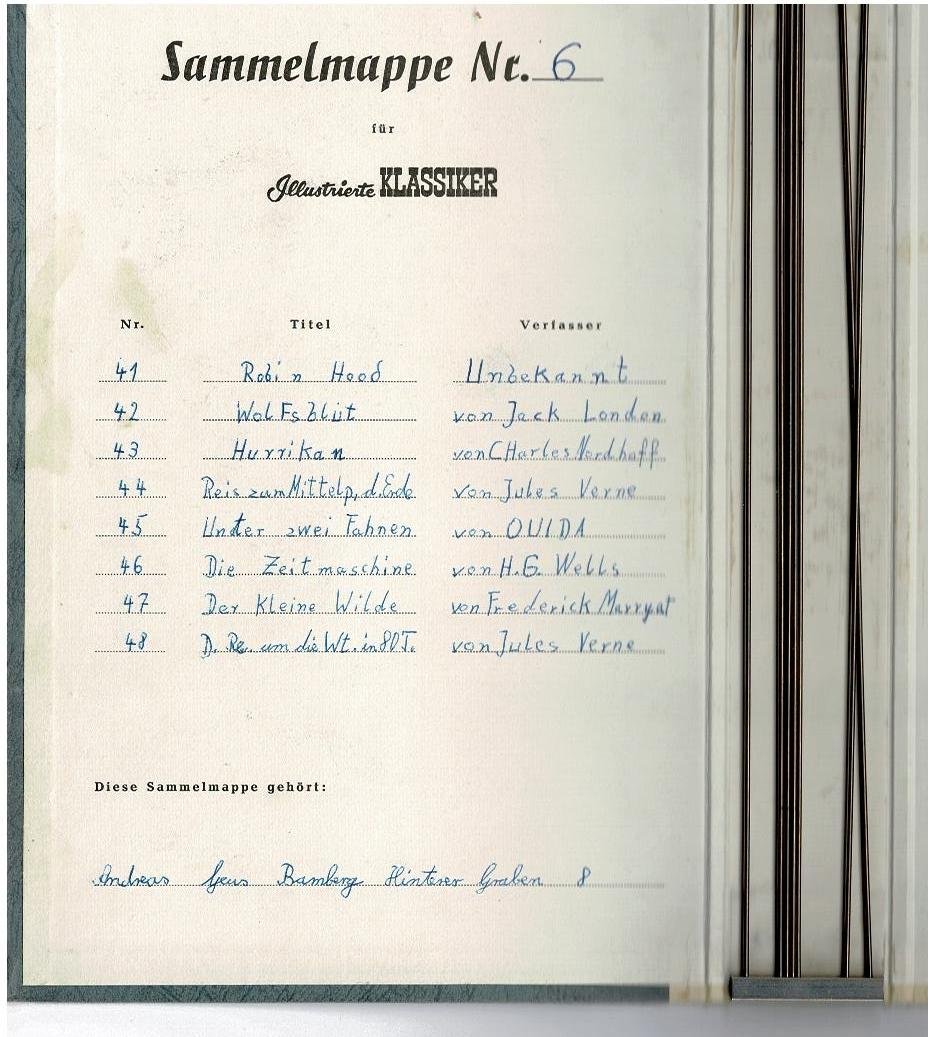 Sammelmappe Nr. 6
für
Illustrierte KLASSIKER
Nr. Titel Verfasser
41 Robin Hood Unbekannt
42 Wolfsblut von Jack London
43 Hurrikan von CHarles Nordhoff
44 Reis zum Mittelp, d. Erde von Jules Verne
45 Unter zwei Fahnen von OUIDA
46 Die Zeitmaschine von H.G. Wells
47 Der Kleine Wilde von Frederick Marryat
48 D. Re. um die Wt. in 80 T. von Jules Verne
Diese Sammelmappe gehört:
Andreas Bamberg Hinterer Graben 8